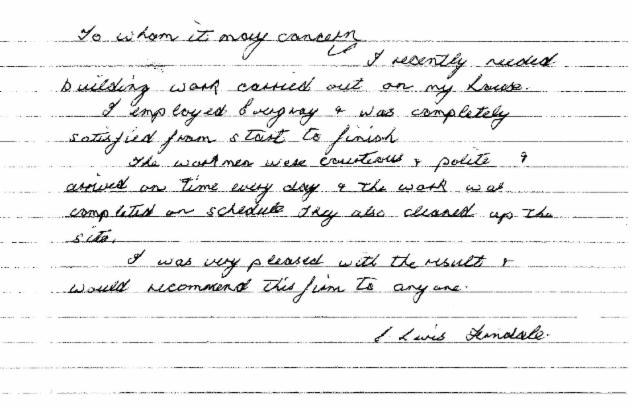 To whom it may concern
I recently needed
building work carried out on my house.
I employed & was completely
satisfied from start to finish
The workmen were courteous & polite &
arrived on time every day & the work was
completed on schedule They also cleaned up the
site.
I was very pleased with the result &
would recommend this firm to anyone.
Lewis Ferndale.